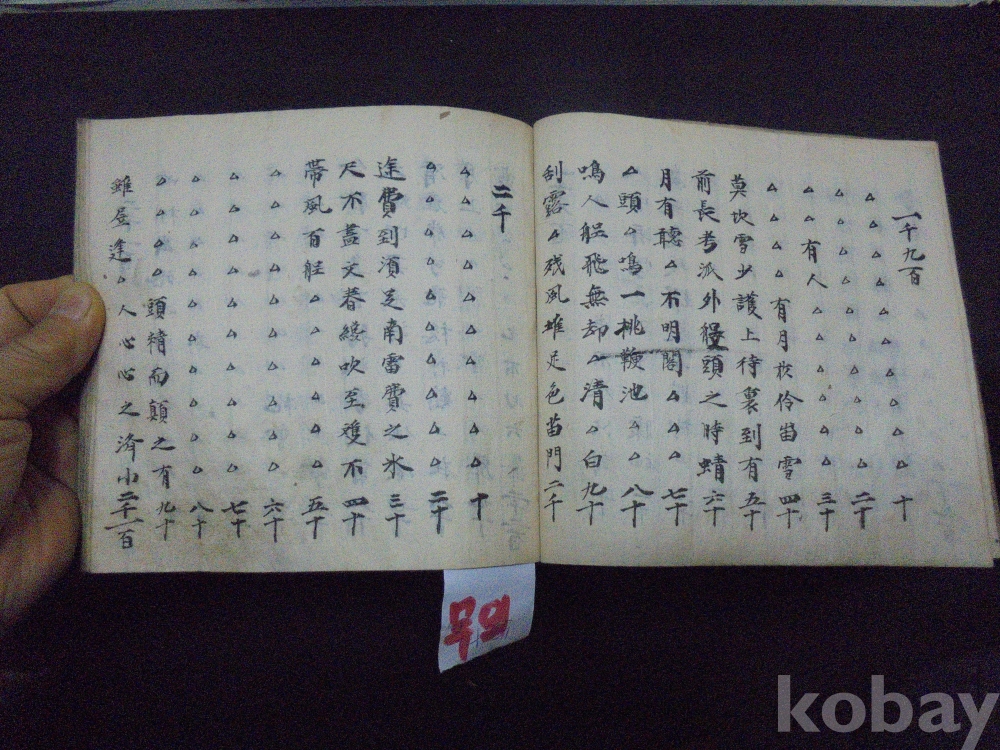 一千九百
△ △ △ △ △ △ △ △ △ 十
△ △ △ △ △ △ △ △ △ 二十
△ △ 有 人 △ △ △ △ △ 三十
△ △ △ △ 有 月 伶 當 雪 四十
莫 吹 雪 少 護 上 待 裏 到 有 五十
前 長 考 派 外 頭 之 時 蜻 六十
月 有 聽 △ 不 明 閣 △ △ △ 七十
△ 頭 △ 鳴 一 桃 鞭 池 △ △ 八十
鳴 人 艇 飛 無 却 △ 清 △ 白 九十
刮 露 △ 残 風 堆 足 色 當 門 二千
二千
△ △ △ △ △ △ △ △ △ △ 十
△ △ △ △ △ △ △ △ △ △ 二十
途 費 到 須 足 南 雷 費 之 氷 三十
尺 不 盡 文 暮 緩 吹 至 不 四十
帶 風 百 艇 △ △ △ △ △ △ 五十
△ △ △ △ △ △ △ △ △ △ 六十
△ △ △ △ △ △ △ △ △ △ 七十
△ △ △ △ △ △ △ △ △ △ 八十
△ △ △ △ 頭 精 而 顛 之 有 九十
雖 屋 逢 △ 人 心 心 之 済 小 二千一百
무의
kobay